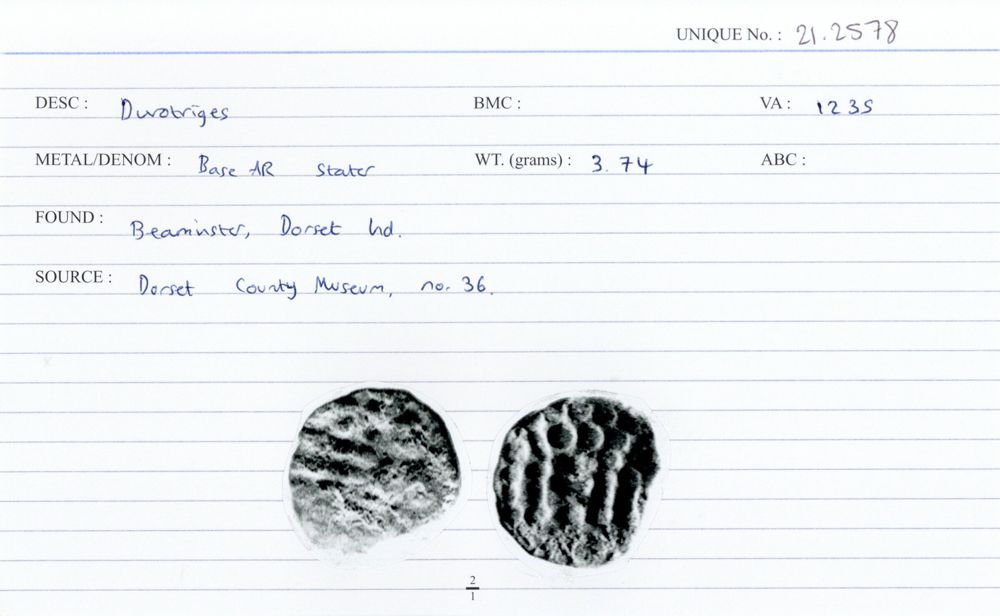 UNIQUE No. : 21.2578
DESC : Durotriges BMC : VA : 1235
METAL/DENOM : Base AR Stater WT. (grams) : 3.74 ABC :
FOUND : Beaminster, Dorset Ind.
SOURCE : Dorset County Museum, no. 36.
2
1